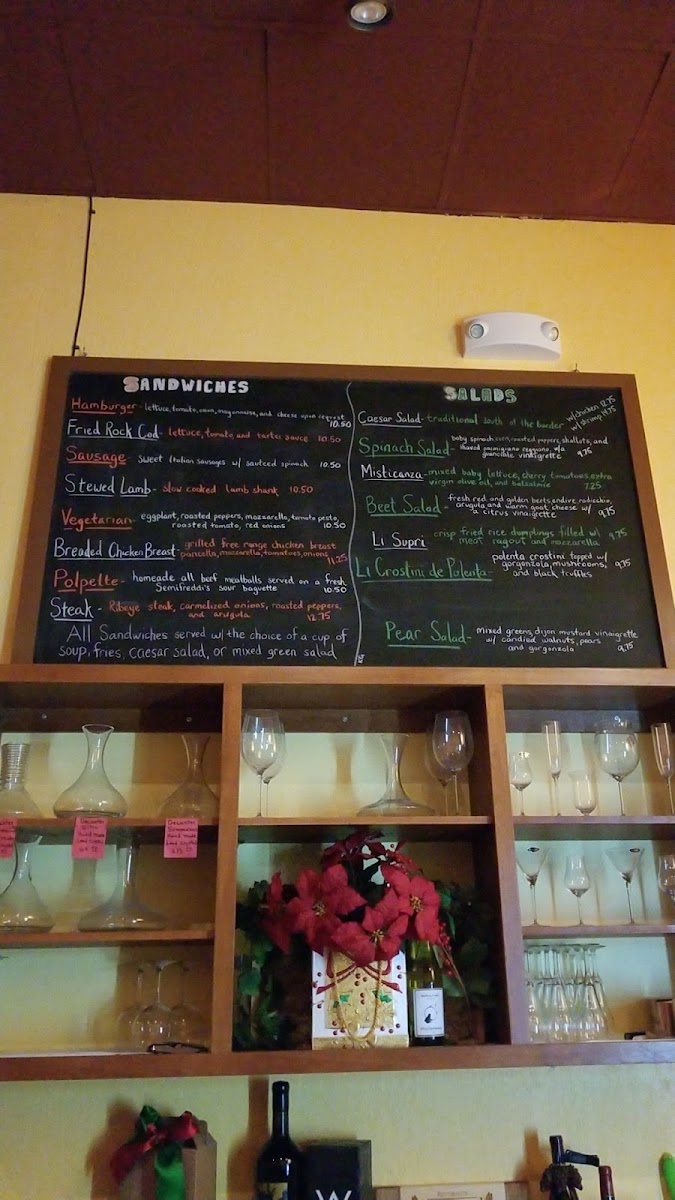 SANDWICHES
Hamburger - lettuce, tomato, onion, mayonnaise, and cheese upon request
10.50
Fried Rock Cod - lettuce, tomato, and tartar sauce 10.50
Sausage - sweet Italian sausages w/ sauteed spinach 10.50
Stewed Lamb - slow cooked lamb shank 10.50
Vegetarian - eggplant, roasted peppers, mozzarella, tomato pesto,
roasted tomato, red onions 10.50
Breaded Chicken Breast - grilled free range chicken breast
pancetta, mozzarella, tomatoes, onions
11.25
Polpette - homeade all beef meatballs served on a fresh
Semifreddi's sour baguette 10.50
Steak - Ribeye steak, carmelized onions, roasted peppers,
and arugula 12.75
All Sandwiches served w/ the choice of a cup of
soup, fries, caesar salad, or mixed green salad
SALADS
Caesar Salad - traditional south of the border w/chicken 12.75
w/shrimp 14.75
Spinach Salad - baby spinach, corn, roasted peppers, shallots, and
shaved parmigiano reggiano, w/a
guanciale vinaigrette 9.75
Misticanza - mixed baby lettuce, cherry tomatoes, extra
virgin olive oil, and balsamic 7.25
Beet Salad - fresh red and golden beets, endive, radicchio,
arugula and warm goat cheese w/
a citrus vinaigrette 9.75
Li Supri - crisp fried rice dumplings filled w/ 9.75
meat ragout and mozzarella
Li Crostini de Polenta - polenta crostini topped w/
gorgonzola, mushrooms,
and black truffles 9.75
Pear Salad - mixed greens, dijon mustard vinaigrette
w/ candied walnuts, pears
and gorgonzola 9.75
Decanter
hand made
Decanter
hand made
W